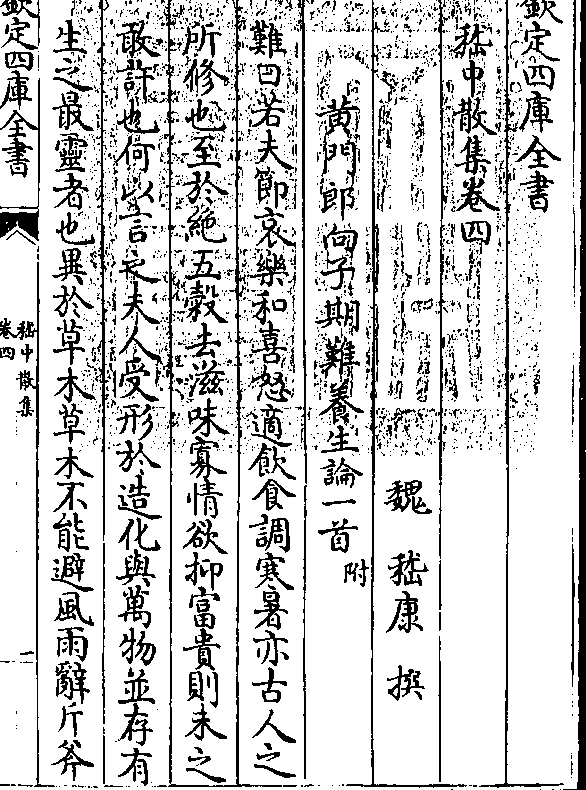 欽定四庫全書
嵇中散集卷四
魏 嵇康 撰
黄門郎向子期難養生論一首附
難曰若夫節哀樂和喜怒適飲食調寒暑亦古人之
所修也至於絶五穀去滋味寡情欲抑富貴則未之
敢許也何以言之夫人受形於造化與萬物並存有
生之最靈者也異於草木草木不能避風雨辭斤斧
欽定四庫全書
嵇中散集
卷四
一